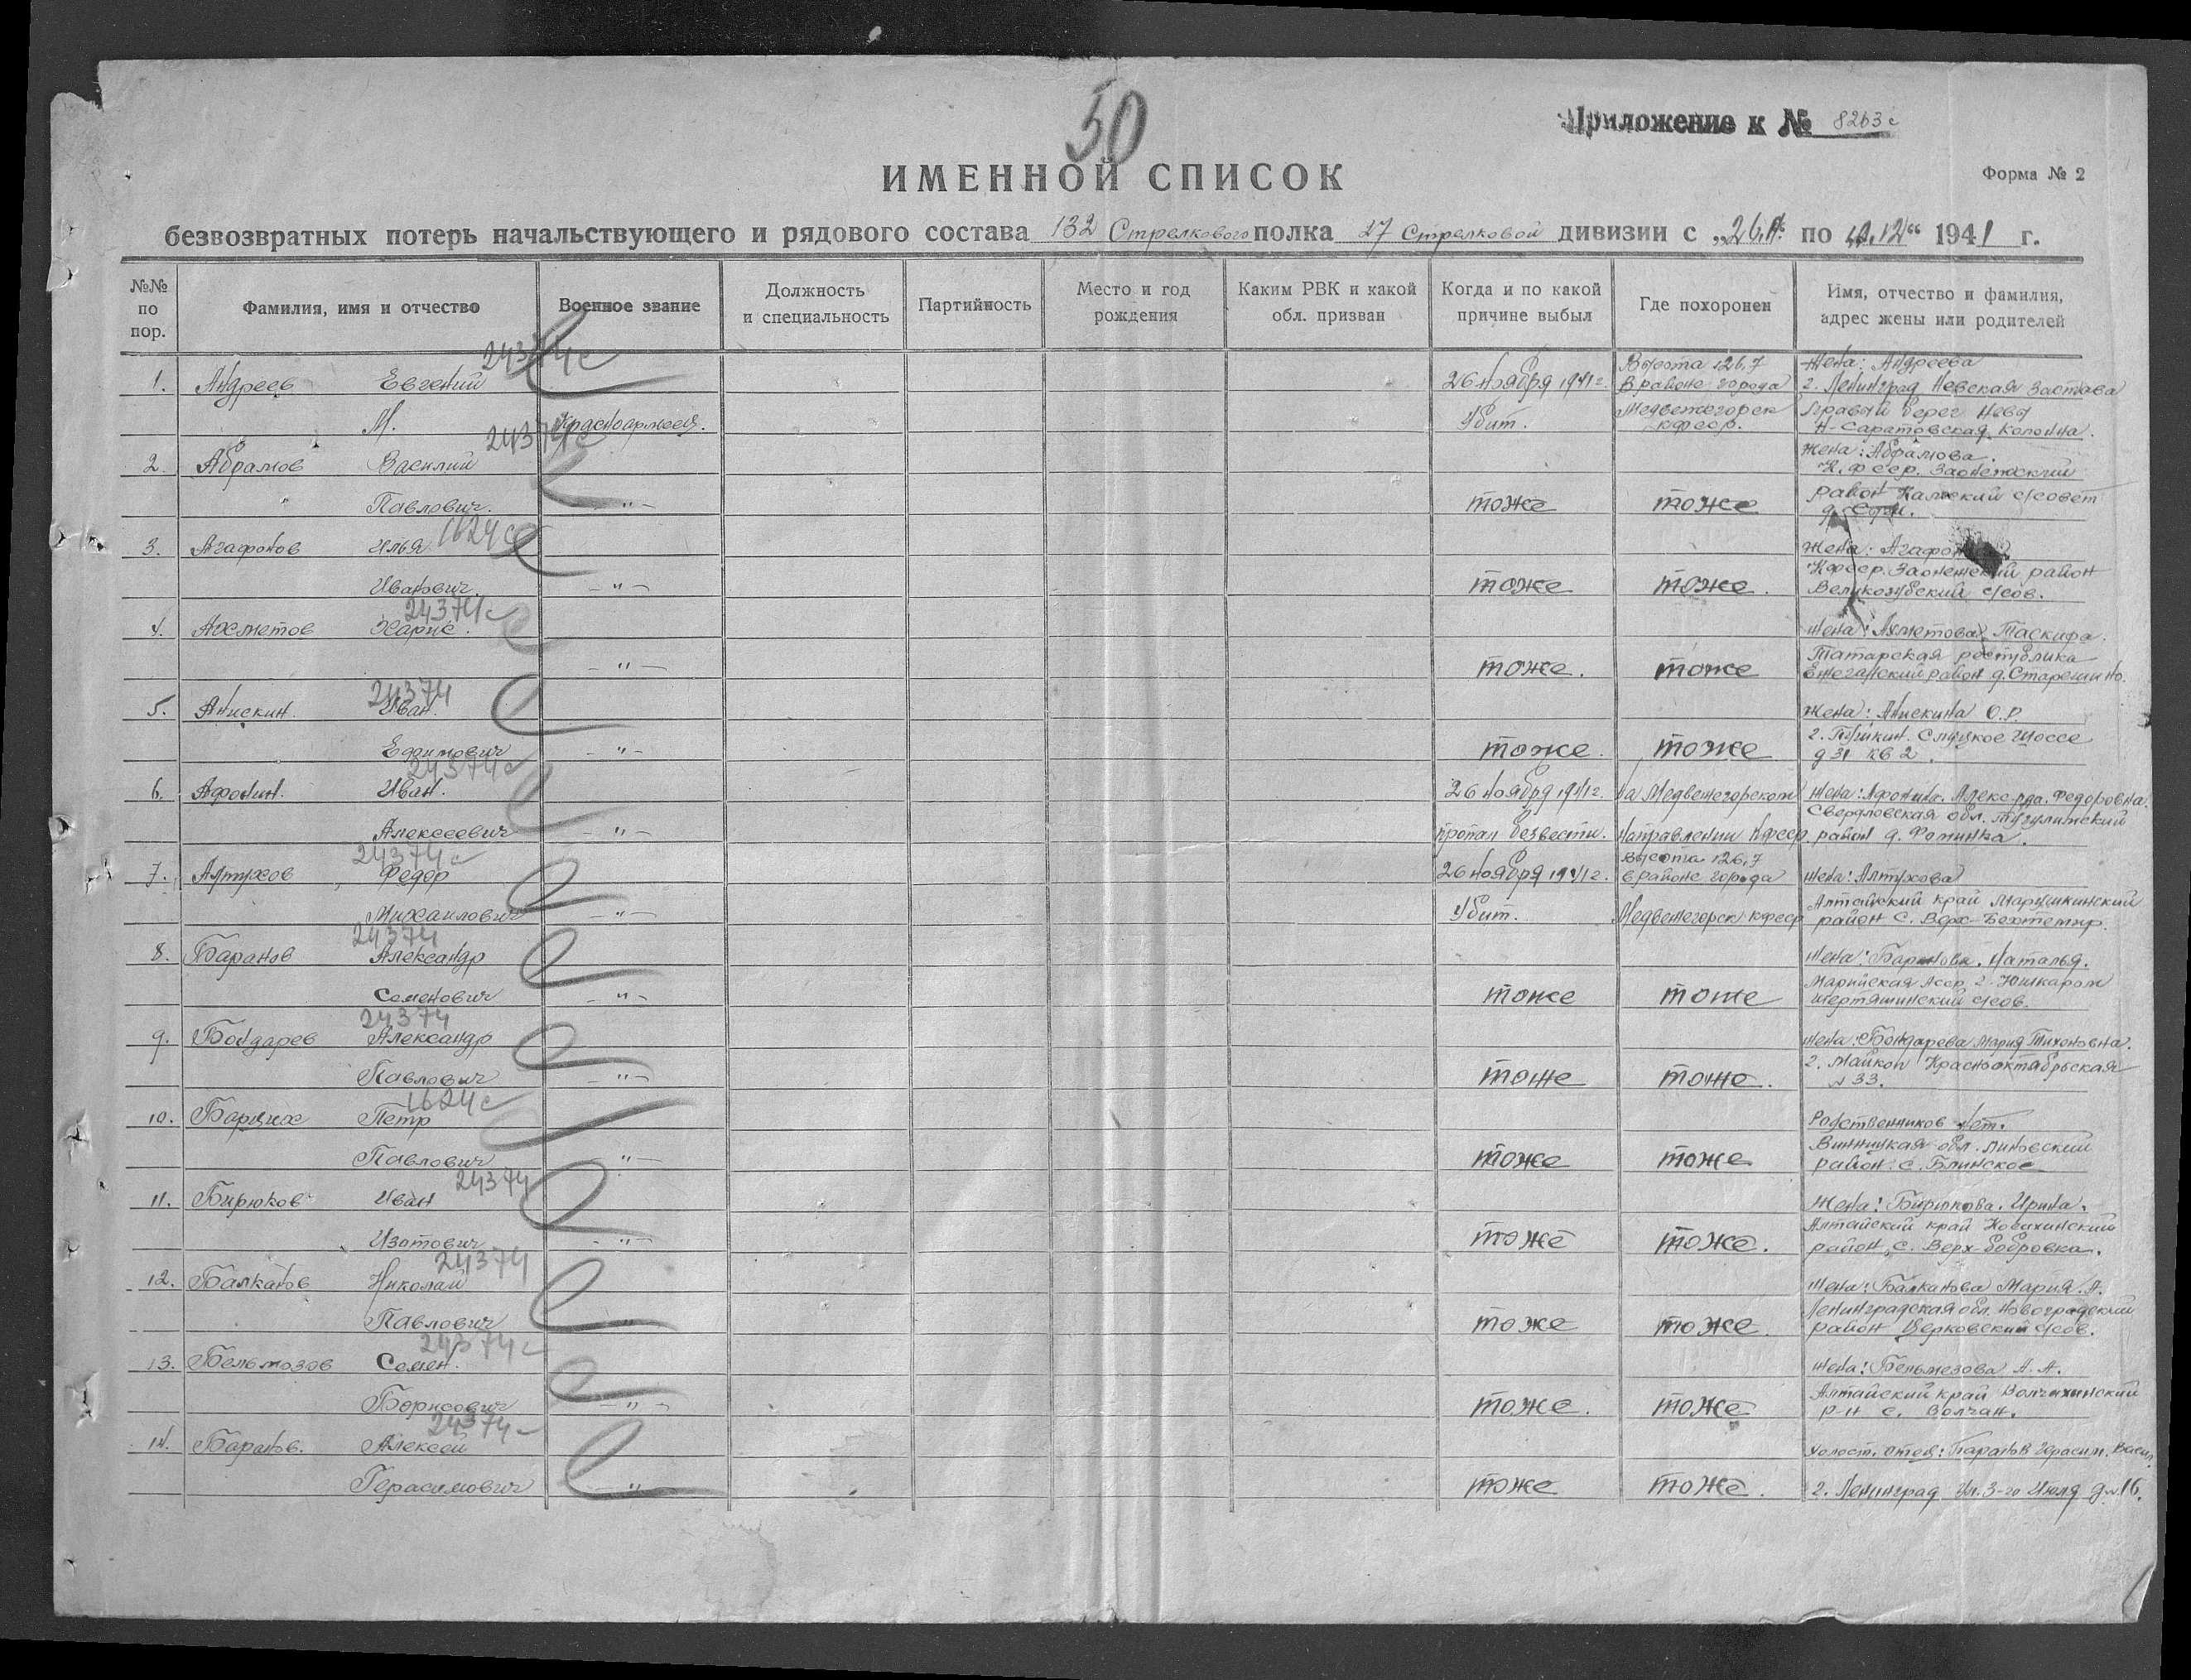 50
Приложение к № 8263с
ИМЕННОЙ СПИСОК
Форма № 2
безвозвратных потерь начальствующего и рядового состава 132 Стрелкового полка 27 Стрелковой дивизии с „26.11. по 12“ 1941 г.
№№ по пор.
Фамилия, имя и отчество
Военное звание
Должность и специальность
Партийность
Место и год рождения
Каким РВК и какой обл. призван
Когда и по какой причине выбыл
Где похоронен
Имя, отчество и фамилия, адрес жены или родителей
24374с
1. Андреев Евгений 26 ноября 1941 г. Высота 126,7 в районе города Жена: Андреева г. Ленинград Невская Застава
М. Красноармеец. Убит. Медвежегорск кфсср. правый берег Невы Н-Саратовская Колонна.
24374с
2. Абрамов Василий Жена: Абрамова. К.фсср. Заонежский
Павлович. -"- тоже тоже район с/совет
1624с
3. Агафонов Илья Жена:
Иванович. -"- тоже тоже. Кфсср. Заонежский район с/сов.
24374с
4. Ахметов Харис. Жена: Ахметова Таскира.
-"- тоже. тоже Татарская республика район д.
24374
5. Анискин. Иван. Жена: Анискина О.Р.
Ефимович -"- тоже. тоже г. Пушкин. Слуцкое шоссе д 31 кв 2.
24374с
6. Афонин. Иван. 26 ноября 1941 г. На Медвежегорском Жена: Афонина. Федоровна. Свердловская обл.
Алексеевич -"- пропал безвести. направлении Кфсср. район д. Фоминка.
24374с
7. Алтухов Федор 26 ноября 1941 г. Высота 126,7 в районе города Жена: Алтухова
Михаилович -"- Убит. Медвежегорск кфсср Алтайский край Марушкинский район с. Верх-Бехтемир.
24374
8. Баранов Александр Жена: Баранова. Наталья.
Семенович -"- тоже тоже Марийская Асср. с/сов.
24374
9. Бондарев Александр Жена: Бондарева Мария Тихоновна.
Павлович -"- тоже тоже. г. Майкоп Краснооктябрьская № 33.
1624с
10. Петр Родственников нет.
Павлович -"- тоже тоже Винницкая обл. район. с.
24374
11. Бирюков Иван Жена: Бирюкова. Ирина.
Изотович -"- тоже тоже. Алтайский край район, с. Верх-Бобровка.
24374
12. Балканов Николай Жена: Балканова Мария. А.
Павлович -"- тоже тоже. Ленинградская обл. Новоградский район Церковский с/сов.
24374с
13. Бельмезов Семен. Жена: Бельмезова А. А.
Борисович -"- тоже. тоже Алтайский край Волчихинский р-н с. Волчан.
24374
14. Баранов. Алексей Холост. Отец: Баранов Герасим. Васил.
Герасимович -"- тоже тоже. г. Ленинград Ул. 3-го Июля д. 16.